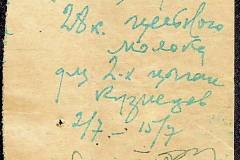 28 к. цельного
молока
для 2-х
Кузнецов
2/7 – 15/7